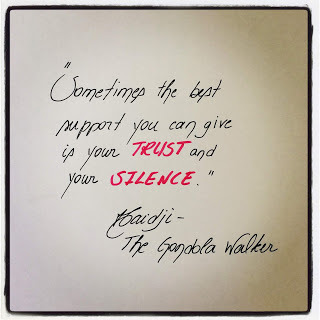 "Sometimes the best
support you can give
is your TRUST and
your SILENCE."
Haidji -
The Gondola Walker